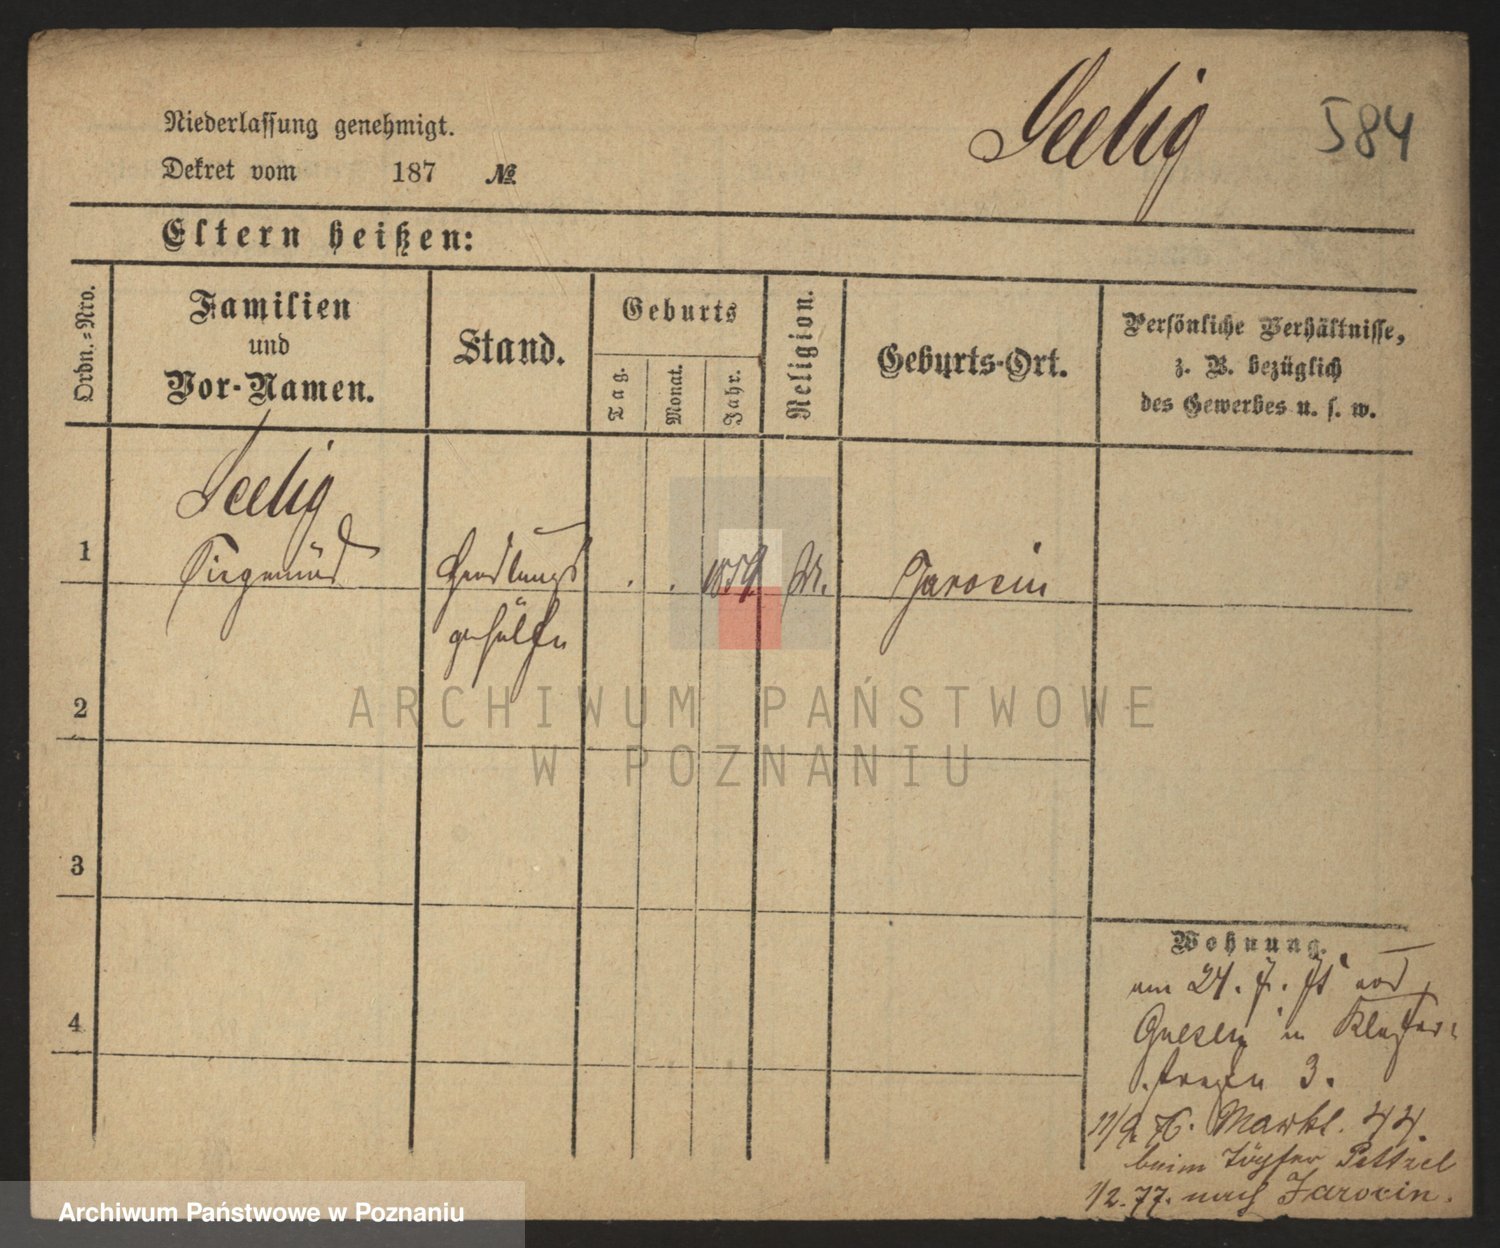 Seelig
584
Niederlassung genehmigt.
Dekret vom 187 №
Eltern heißen:
Ordn.=Nro.
Familien
und
Vor-Namen.
Stand.
Geburts
Tag.
Monat.
Jahr.
Religion.
Geburts-Ort.
Persönliche Verhältnisse,
z. B. bezüglich
des Gewerbes u. s. w.
1
Seelig
Siegmund
Handlungs
gehülfe
1854
M.
Jarocin
2
3
4
Wohnung.
am 24. 7. 75 von
Gnesen in Kloster=
straße 3.
11/9 76. Markt. 44.
beim Töpfer
1/2. 77. nach Jarocin.
ARCHIWUM PAŃSTWOWE
W POZNANIU
Archiwum Państwowe w Poznaniu